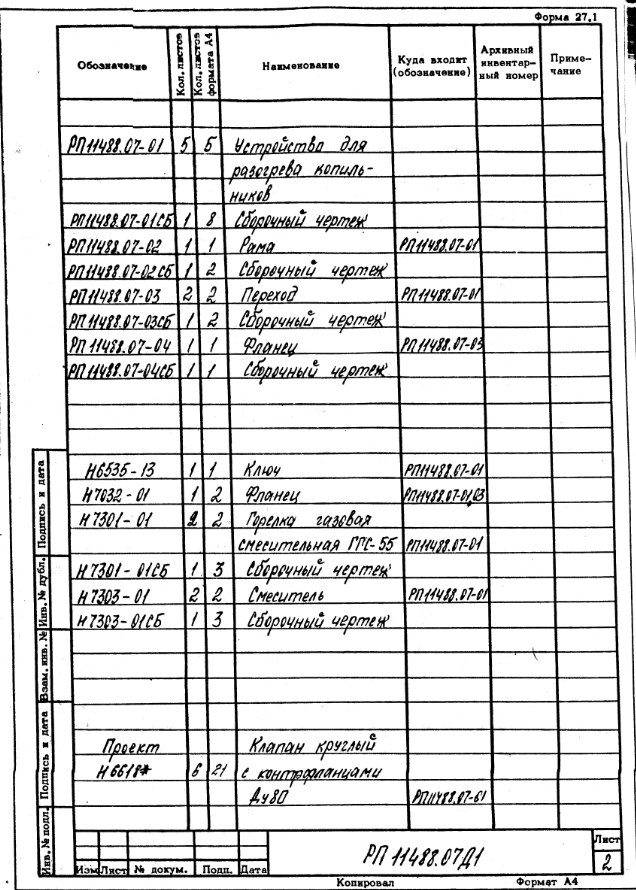 Форма 27.1
Обозначение Кол. листов Кол. листов формата А4 Наименование Куда входит (обозначение) Архивный инвентарный номер Примечание
РП11488.07-01 5 5 Устройство для
разогрева копиль-
ников
РП11488.07-01СБ 1 8 Сборочный чертеж
РП11488.07-02 1 1 Рама РП11488.07-01
РП11488.07-02СБ 1 2 Сборочный чертеж
РП11488.07-03 2 2 Переход РП11488.07-01
РП11488.07-03СБ 1 2 Сборочный чертеж
РП11488.07-04 1 1 Фланец РП11488.07-03
РП11488.07-04СБ 1 1 Сборочный чертеж
Н6535-13 1 1 Ключ РП11488.07-01
Н7032-01 1 2 Фланец РП11488.07-01,03
Н7301-01 2 2 Горелка газовая
смесительная ГГС-55 РП11488.07-01
Н7301-01СБ 1 3 Сборочный чертеж
Н7303-01 2 2 Смеситель РП11488.07-01
Н7303-01СБ 1 3 Сборочный чертеж
Проект Клапан круглый
Н6618* 6 21 с контрфланцами
Ду80 РП11488.07-01
Инв. № подл. Подпись и дата Взам. инв. № Инв. № дубл. Подпись и дата
Изм Лист № докум. Подп. Дата
РП 11488.07Д1
Лист
2
Копировал Формат А4